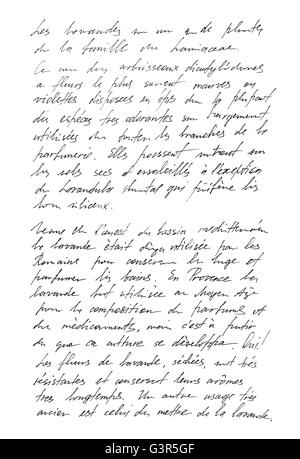 Les lavandes sont un genre de plantes
de la famille des Lamiaceae.
Ce sont des arbrisseaux dicotylédones
à fleurs le plus souvent mauves ou
violettes disposées en épis dont la plupart
des espèces très odorantes sont largement
utilisées dans toutes les branches de la
parfumerie. Elles poussent surtout sur
les sols secs et ensoleillés à l'exception
du Lavandula qui préfère les
sols siliceux.
Venue de l'ouest du bassin méditerranéen
la lavande était déjà utilisée par les
Romains pour conserver le linge et
parfumer les bains. En Provence la
lavande fut utilisée au Moyen Age
pour la composition de parfums et
de médicaments, mais c'est à partir
du que sa culture se développa.
Les fleurs de lavande, séchées, sont très
résistantes et conservent leurs arômes
très longtemps. Un autre usage très
ancien est celui de mettre de la lavande.
alamy
Image ID: G3R5GF
www.alamy.com